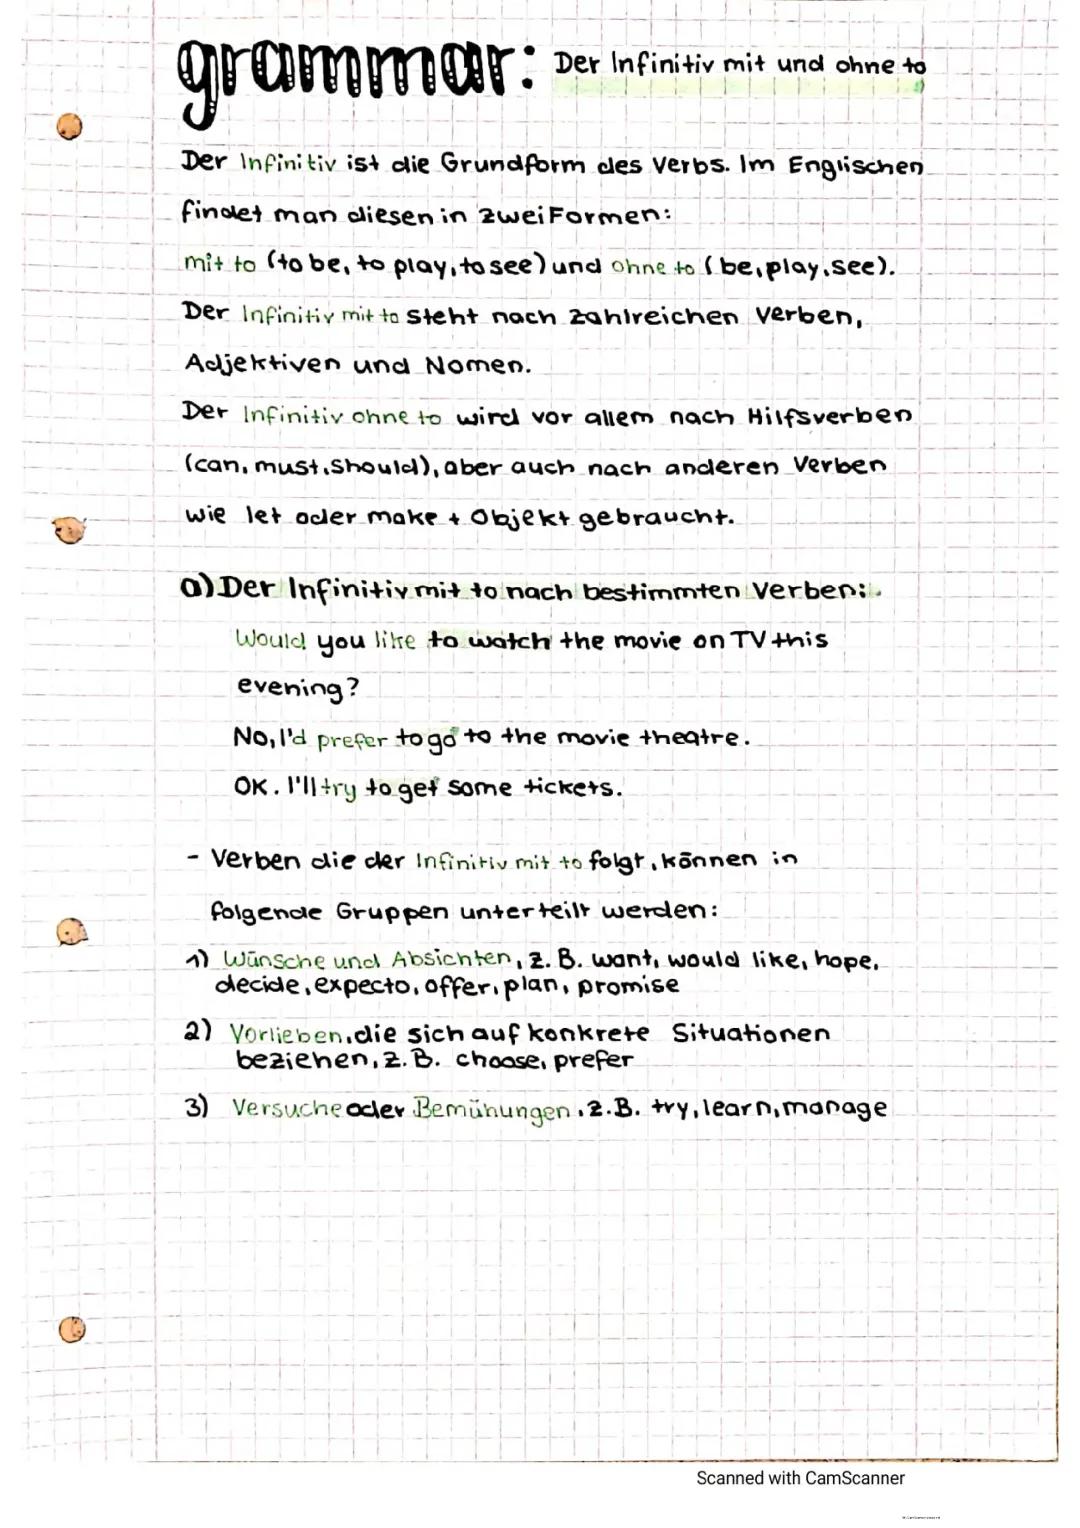 grammar: Der Infinitiv mit und ohne to
Der Infinitiv ist die Grundform des Verbs. Im Englischen
findet man diesen in zwei Formen:
mit to (to be, to play, to see) und ohne to (be, play, see).
Der Infinitiv mit to steht nach zahlreichen Verben,
Adjektiven und Nomen.
Der Infinitiv ohne to wird vor allem nach Hilfsverben
(can, must, should), aber auch nach anderen Verben
wie let oder make + Objekt gebraucht.
a) Der Infinitiv mit to nach bestimmten Verben:
Would you like to watch the movie on TV this
evening?
No, I'd prefer to go to the movie theatre.
OK. I'll try to get some tickets.
- Verben die der Infinitiv mit to folgt, können in
folgende Gruppen unterteilt werden:
1) Wünsche und Absichten, z. B. want, would like, hope,
decide, expecto, offer, plan, promise
2) Vorlieben, die sich auf konkrete Situationen
beziehen, z. B. choose, prefer
3) Versuche oder Bemühungen, z. B. try, learn, manage
Scanned with CamScanner